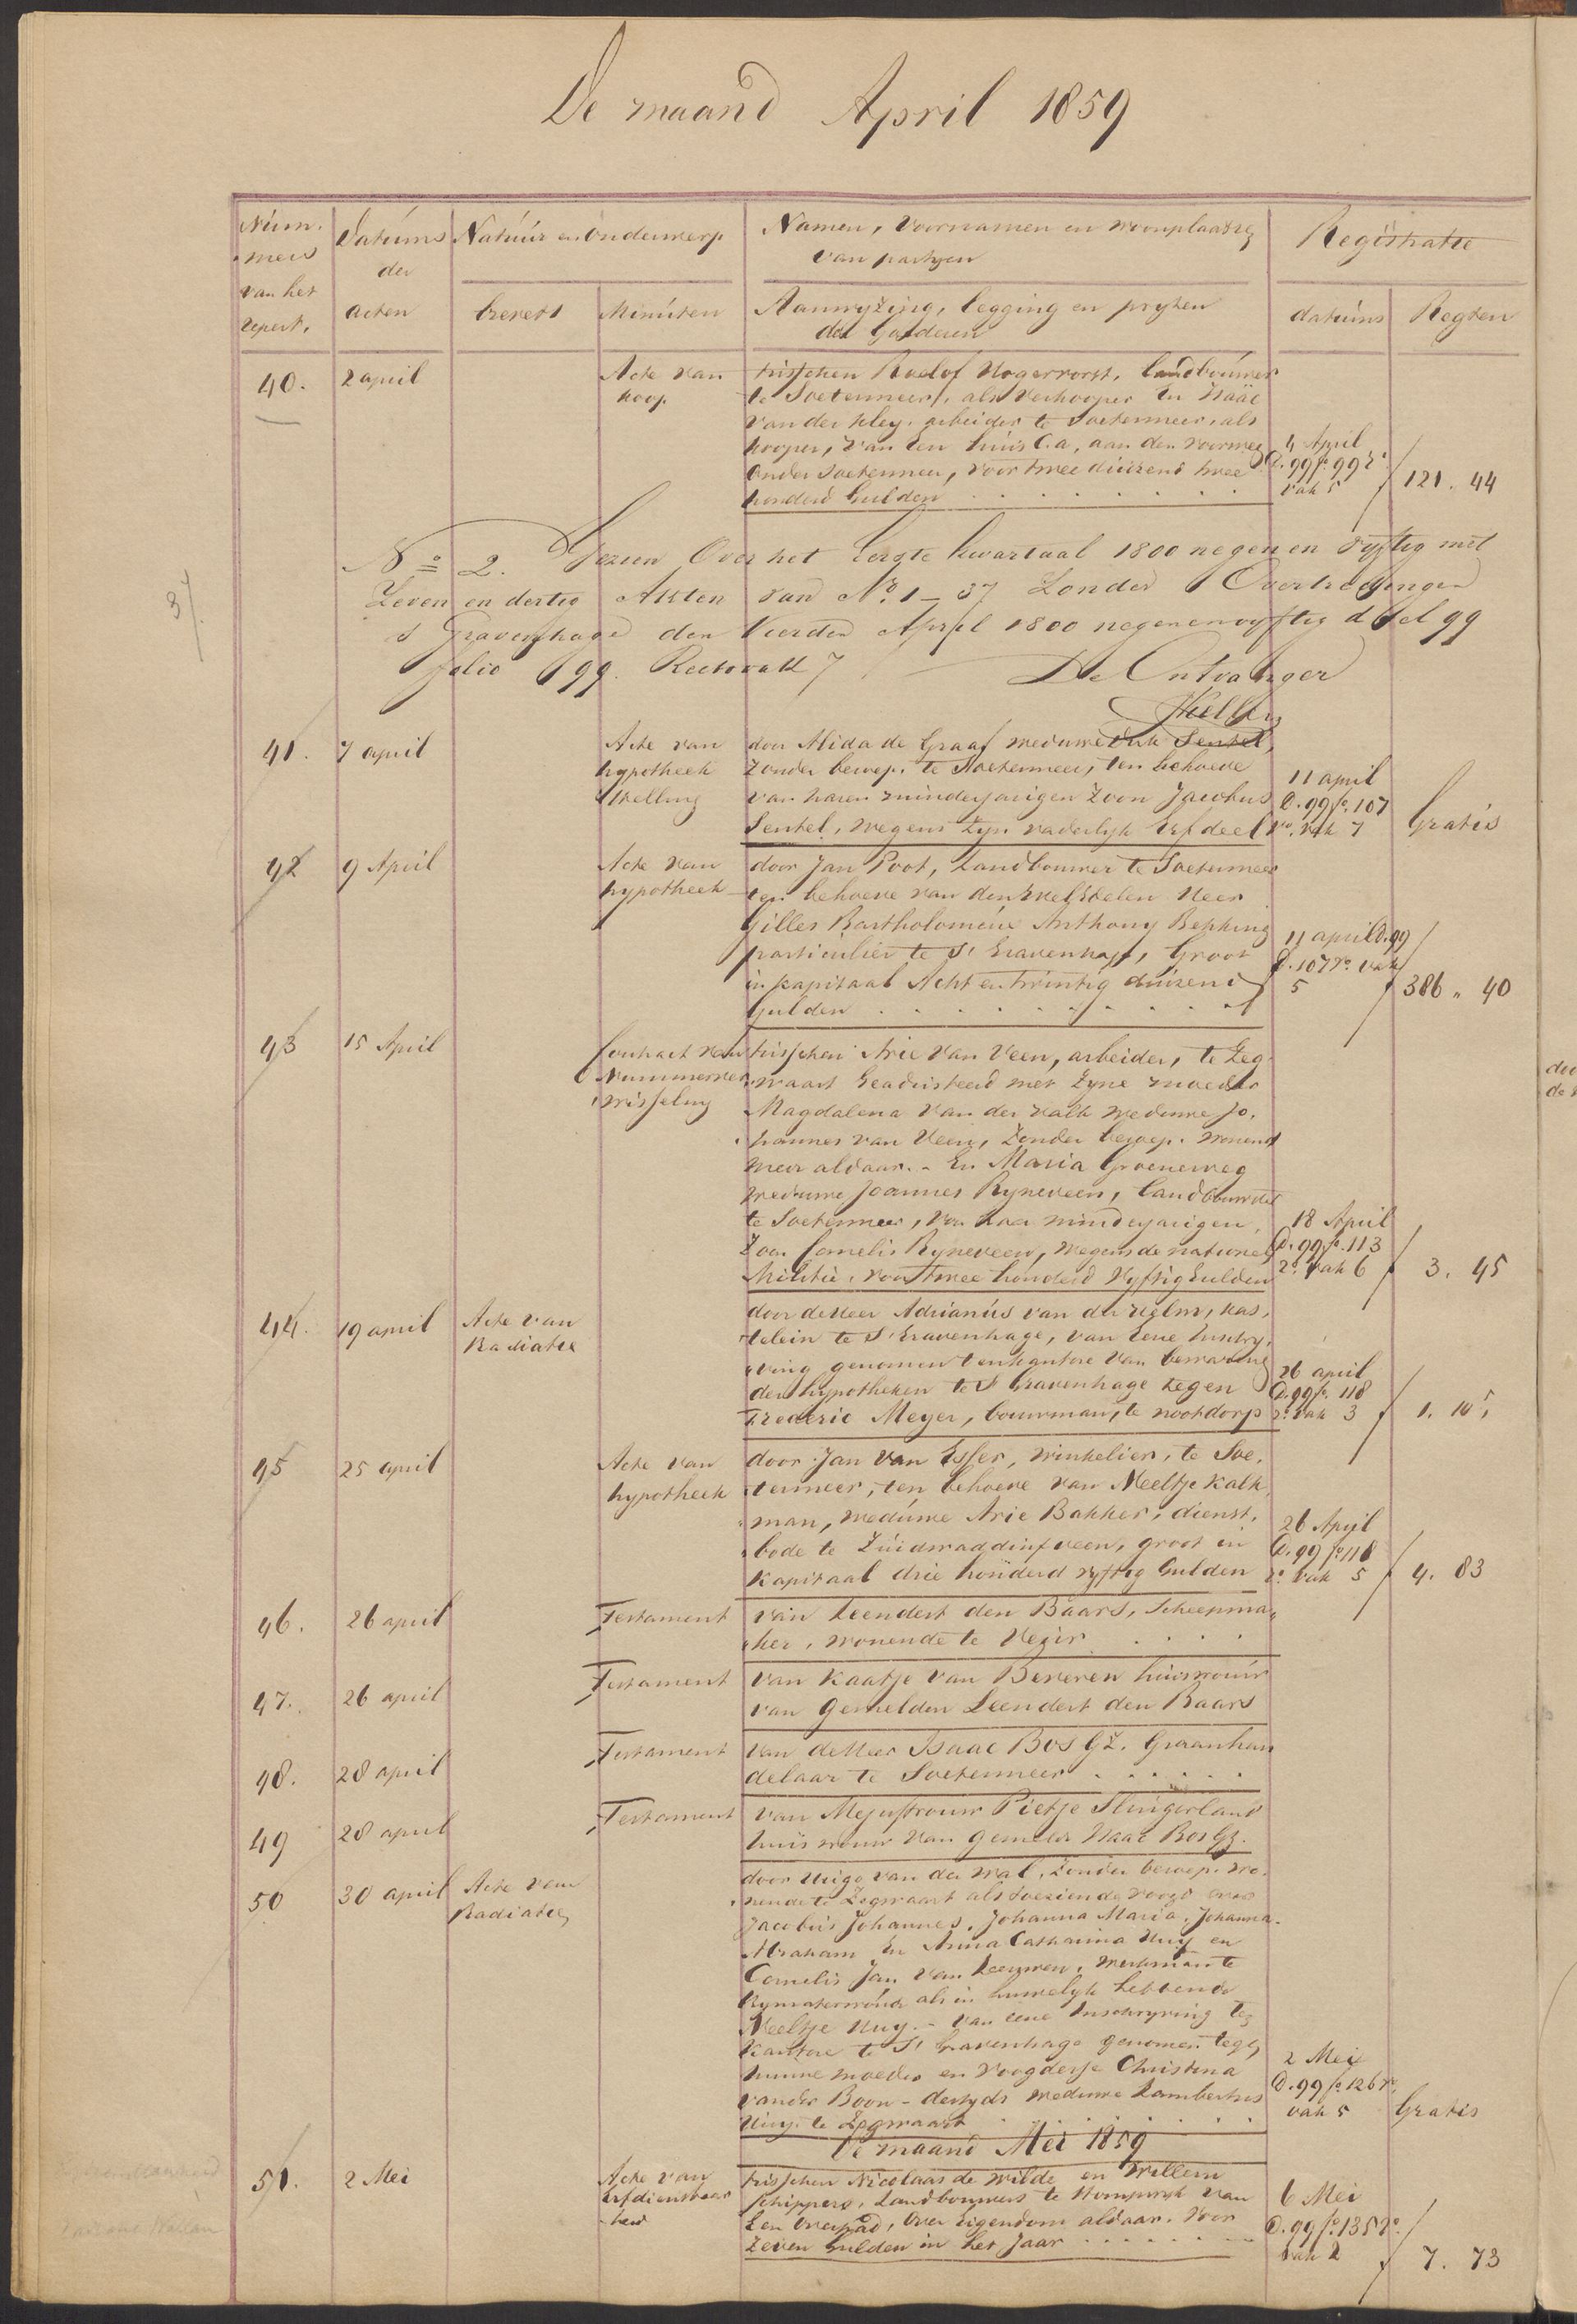 De maand April 1859
Num.
mers
van het
repert.
Datums
der
acten
Natuur en Onderwerp
brevets
Minuten
Namen, Voornamen en woonplaatsen
van partyen
Aanwyzing, legging en pryzen
der Goederen
Registratie
datums
Regten
40.
2 april
Acte van
koop
tusschen Roelof Hogervorst, landbouwer
te Soetermeer, als verkooper En Isaäc
van der Kley, arbeider te Soetermeer, als
kooper, van een huis C.a, aan den voorweg
onder Soetermeer, voor twee duizend twee
honderd Gulden
4 April
D. 99 fo. 99 ro.
vak 5
121. 44
No. 2. Gezien Over het Eerste kwartaal 1800 negen en vyftig met
Zeven en dertig Akten van No. 1 - 37 Zonder Overtredingen
s Gravenhage den Vierden April 1800 negenenvyftig deel 99
folio 99. Recto vak 7
De Ontvanger
37.
41.
7 april
Acte van
hypotheek
stelling
door Alida de Graaf weduwe Dirk Sentel,
zonder beroep, te Soetermeer, ten behoeve
van haren minderjarigen Zoon Jacobus
Sentel, wegens Zyn vaderlyk Erfdeel
11 april
D. 99 fo. 107
vo. vak 7
Gratis
42
9 April
Acte van
hypotheek
door Jan Poot, Landbouwer te Soetermeer
ten behoeve van den WelEdelen Heer
Gilles Bartholomeus Anthony Bekking
particulier te S' Gravenhage, Groot
in kapitaal Acht en twintig duizend
Gulden
11 april D. 99
fo. 107 ro. vak
5
386 " 40
43
15 April
Contract van
Nummerver
wisseling
tusschen Arie van Veen, arbeider, te Zeg
waart Geadsisteerd met Zyne moeder
Magdalena van der Valk weduwe Jo.
hannes van Veen, Zonder beroep. wonend
mede aldaar. - En Maria Groeneweg
weduwe Joannes Ryneveen, landbouwster
te Soetermeer, voor haar minderjarigen
Zoon Cornelis Ryneveen, wegens de nationele
Militie, voor twee honderd Vyftig Gulden
18 April
D. 99 fo. 113
ro. vak 6
3. 45
44.
19 april
Acte van
Radiatie
door de Heer Adrianus van der Helm, kas,
telein te S' Gravenhage, van Eene Inschry,
ving genomen ten kantore van bewaring
der hypotheken te S' Gravenhage tegen
Frederic Meyer, bouwman, te nootdorp
26 april
D. 99 fo. 118
ro. vak 3
1. 10 5
45
25 april
Acte van
hypotheek
door Jan van Esser, winkelier, te Soe,
termeer, ten behoeve van Neeltje Kalk,
man, weduwe Arie Bakker, dienst,
bode te Zuidwaddinxveen, groot in
Kapitaal drie honderd vyftig Gulden
26 April
D. 99 fo. 118
ro. vak 5
4. 83
46.
26 april
Testament
van Leendert den Baars, Scheepma,
ker, wonende te
47.
26 april
Testament
van Kaatje van Beveren huisvrouw
van Gemelden Leendert den Baars
48.
28 april
Testament
van de Heer Isaac Bos Gz. Graanhan
delaar te Soetermeer
49
28 april
Testament
van Mejufvrouw Pietje Slingerland
huisvrouw van gemelden Isaac Bos Gz.
50
30 april
Acte van
Radiatie
door Huigo van der Wal, Zonder beroep. wo,
nende te Zegwaart als toeziende voogd over
Jacobus Johannes, Johanna Maria, Johanna
Abraham En Anna Catharina Huy en
Cornelis Jan van Leeuwen, werkman te
Rynsaterwoude als in huwelyk hebbende
Neeltje Huy. - van eene Inschryving ten
Kantore te S' Gravenhage genomen tegen
hunne moeder en voogdesse Christina
van der Boon - destyds weduwe Lambertus
Huy. te Zegwaart
2 Mei
D. 99 fo. 126 ro.
vak 5
Gratis
De maand Mei 1859
51.
2 Mei
Acte van
Erfdienstbaar
heid
tusschen Nicolaas de Wilde en Willem
Schippers, Landbouwers te Stompwyk van
Een Overpad, over Eigendom aldaar. voor
Zeven Gulden in het Jaar
6 Mei
D. 99 fo. 135 ro.
vak 2
7. 73